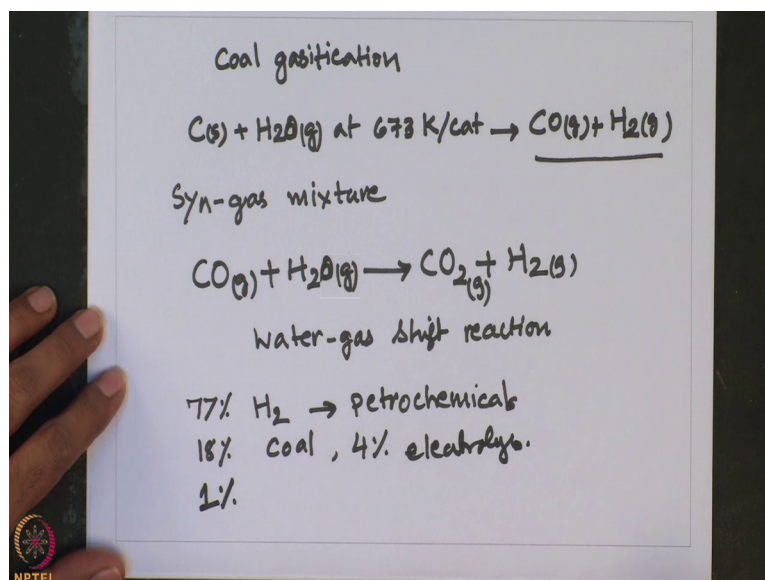 Coal gasification
C(s) + H2O(g) at 673 K/cat → CO(g) + H2(g)
Syn-gas mixture
CO(g) + H2O(g) → CO2(g) + H2(g)
Water-gas shift reaction
77% H2 → Petrochemicals
18% Coal, 4% electrolys.
1%
NPTEL